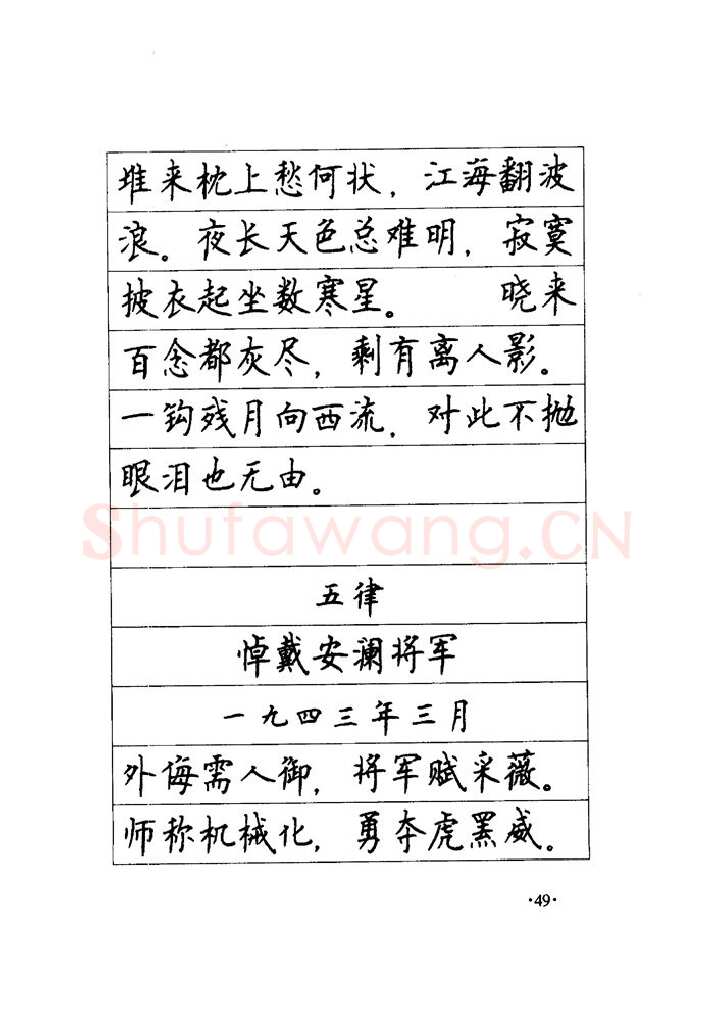 堆来枕上愁何状，江海翻波
浪。夜长天色总难明，寂寞
披衣起坐数寒星。　　晓来
百念都灰尽，剩有离人影。
一钩残月向西流，对此不抛
眼泪也无由。
Shufawang.CN
五律
悼戴安澜将军
一九四三年三月
外侮需人御，将军赋采薇。
师称机械化，勇夺虎罴威。
·49·